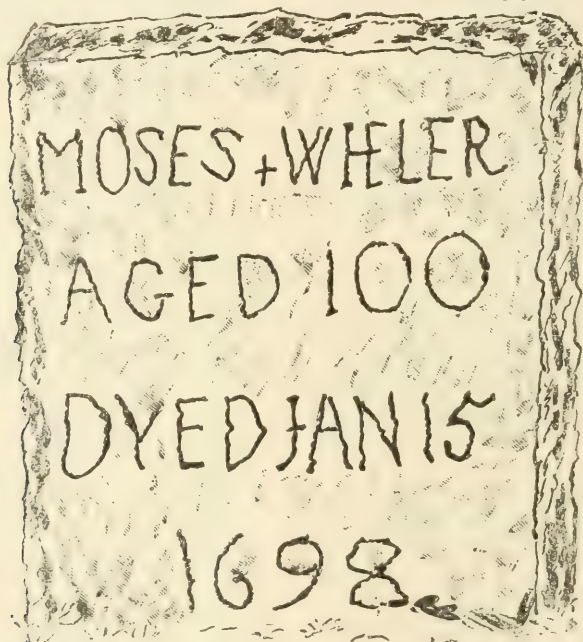 MOSES + WHELER
AGED 100
DYED JAN 15
1698